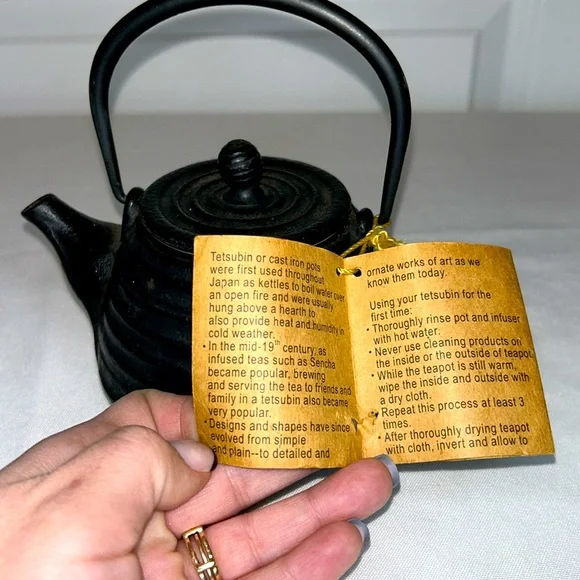 Tetsubin or cast iron pots
were first used throughout
Japan as kettles to boil water over
an open fire and were usually
hung above a hearth to
also provide heat and humidity in
cold weather.
• In the mid-19th century, as
infused teas such as Sencha
became popular, brewing
and serving the tea to friends and
family in a tetsubin also became
very popular.
• Designs and shapes have since
evolved from simple
and plain--to detailed and
ornate works of art as we
know them today.
Using your tetsubin for the
first time:
• Thoroughly rinse pot and infuser
with hot water.
• Never use cleaning products on
the inside or the outside of teapot.
• While the teapot is still warm,
wipe the inside and outside with
a dry cloth.
• Repeat this process at least 3
times.
• After thoroughly drying teapot
with cloth, invert and allow to